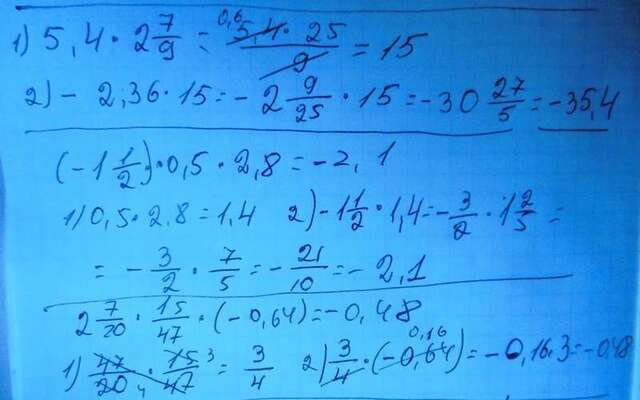 1) 5,4 · 2 7/9 = 0,6 5,4 · 25 / 9 = 15
2) - 2,36 · 15 = - 2 9/25 · 15 = - 30 27/5 = - 35,4
(-1 1/2) · 0,5 · 2,8 = - 2,1
1) 0,5 · 2,8 = 1,4 2) - 1 1/2 · 1,4 = - 3/2 · 1 2/5 =
= - 3/2 · 7/5 = - 21/10 = - 2,1
2 7/20 · 15/47 · (- 0,64) = - 0,48
1) 47/20 4 · 15 3/47 = 3/4 2) 3/4 · (- 0,64) 0,16 = - 0,16·3 = - 0,48